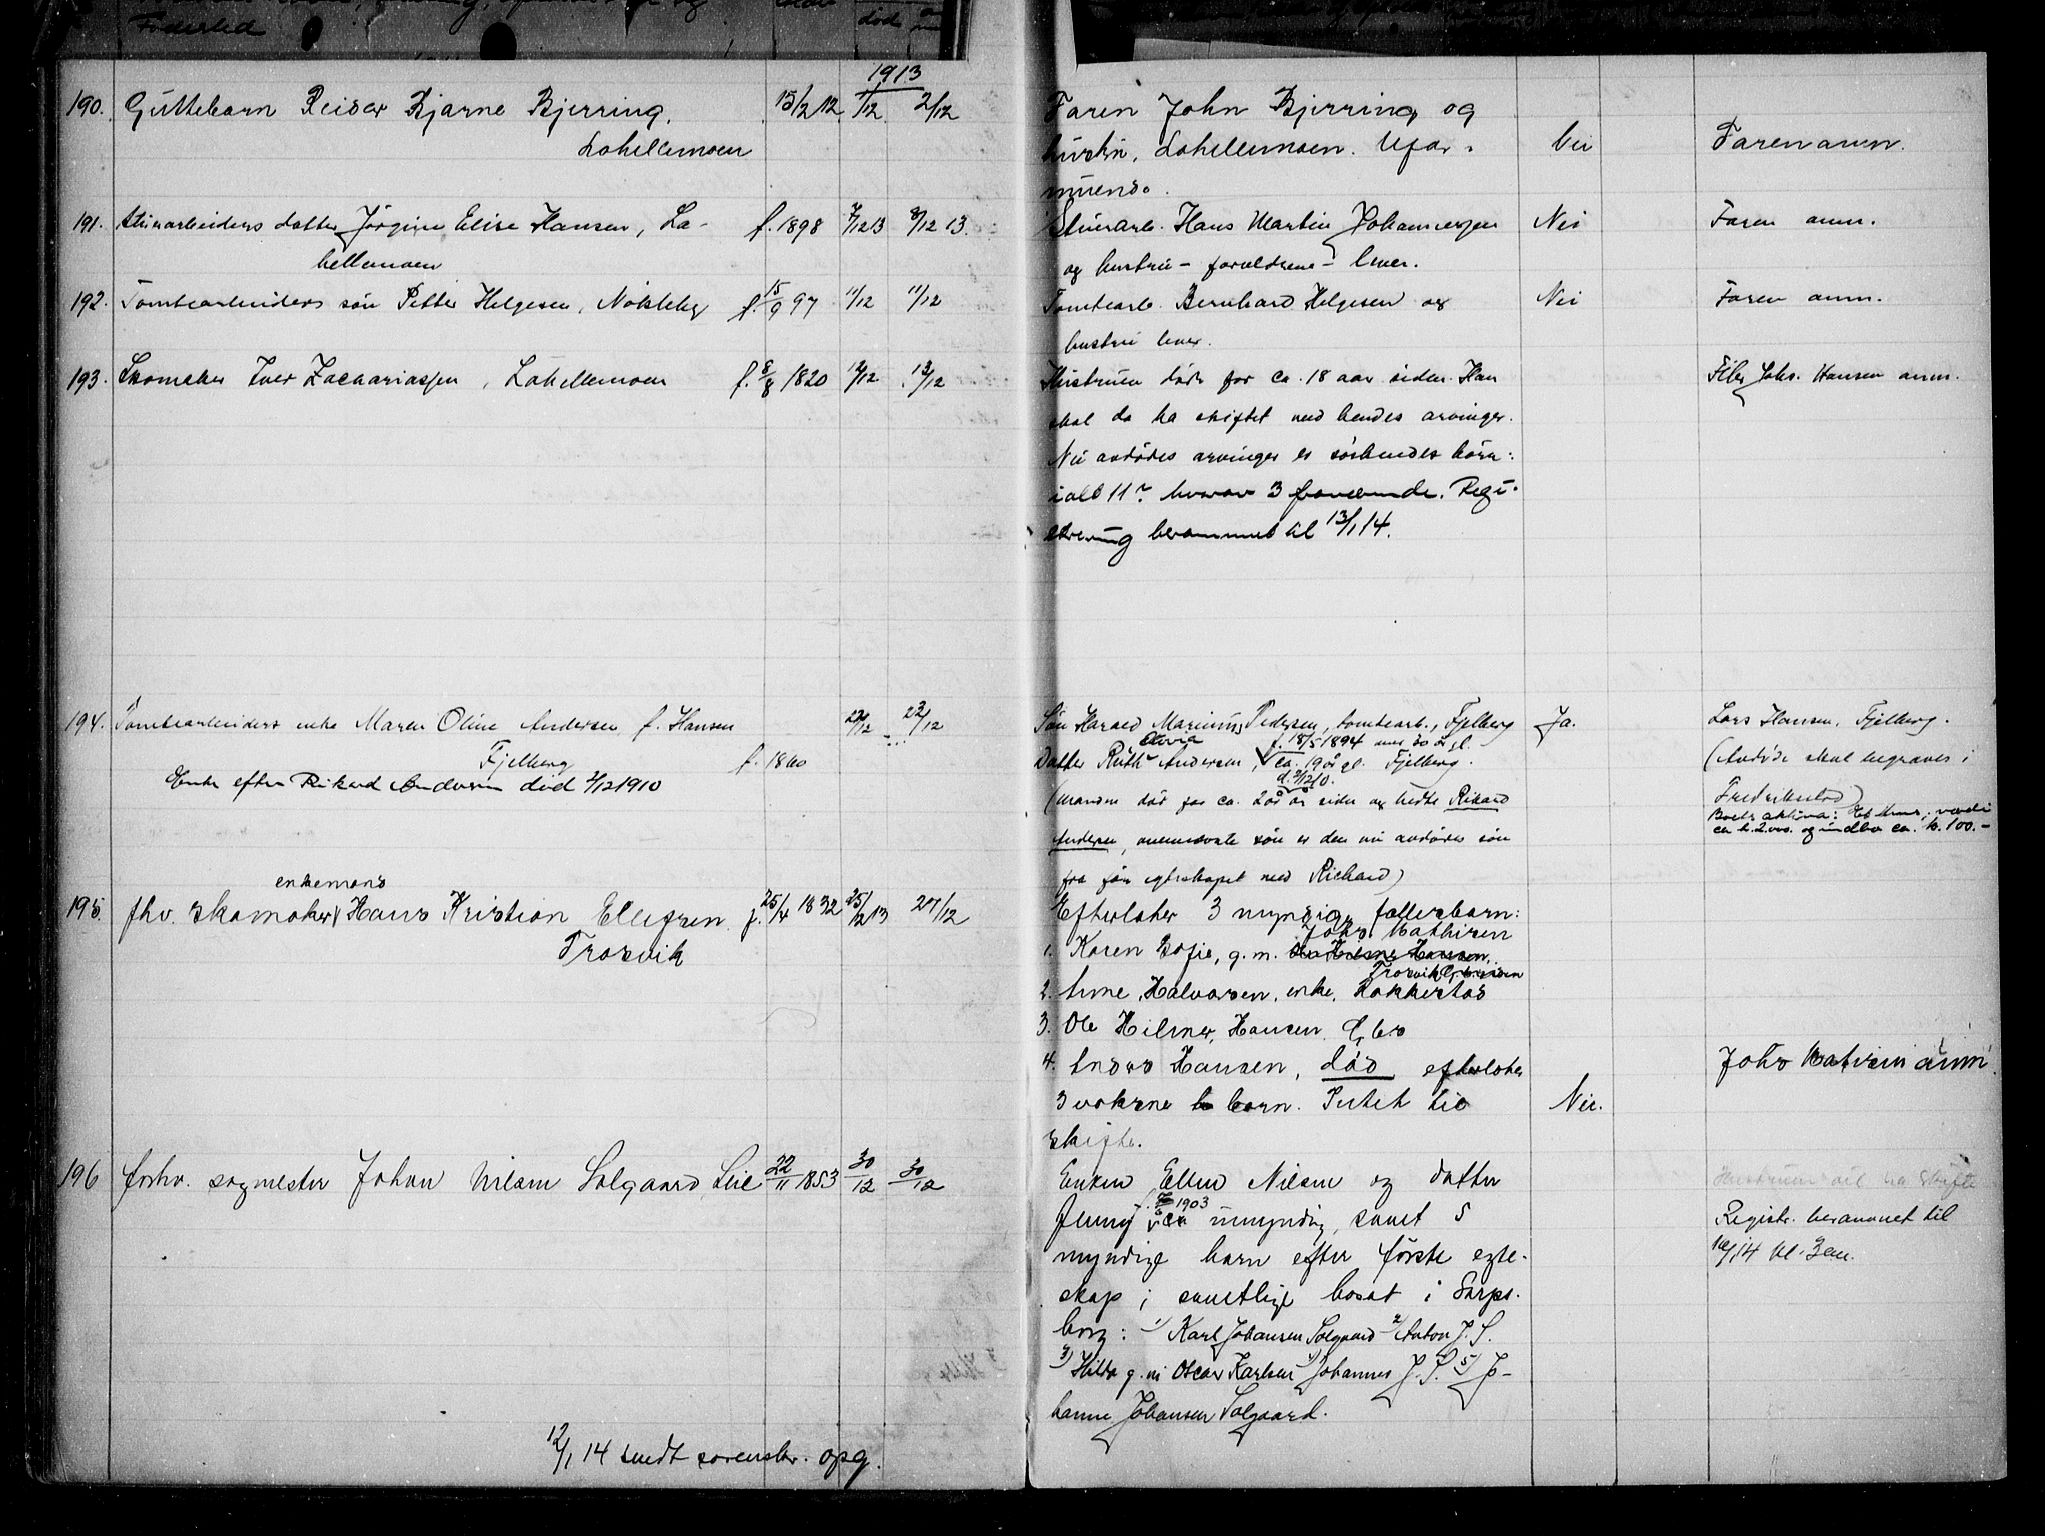 Födested
död
1913
190. Guttebarn Reidar Bjarne Bjerring, 15/2 12 1/12 2/12
Lahellemoen
Faren John Bjerring og
hustru, Lahellemoen. Ufor-
muende.
Nei
Faren anm.
191. Stuearbeiders datter Jörgine Elise Hansen, La- f. 1898 7/12 13 8/12 13.
hellemoen
Stuearb. Hans Martin Johannessen
og hustru - forældrene - lever.
Nei
Faren anm.
192. Tomtearbeiders sön Petter Helgesen, Nökleby f. 15/9 97 11/12 11/12
Tomtearb. Bernhard Helgesen og
hustru lever.
Nei
Faren anm.
193. Skomaker Iver Zachariassen, Lahellemoen f. 8/8 1820 12/12 13/12
Hustruen døde for ca. 18 aar siden. Han
skal da ha skiftet med hendes arvinger.
Nu avdødes arvinger er søskendes børn:
ialt 11? hvorav 3 fraværende. Regi-
strering berammet til 13/1 14.
Johs. Hansen anm.
194. Tomtearbeiders enke Maren Oline Andersen f. Hansen 22/12 23/12
Fjelberg f. 1860
Enke efter Rikard Andersen död 2/12 1910
Sön Harald Marinius Pedersen, tomtearb., Fjelberg
f. 18/5 1894
Datter Ruth Andersen, ca. 19 år gl. Fjelberg.
d. 2/12 10.
(Manden död for ca. 2 år siden og hedte Rikard
Andersen, ovennævnte sön er den nu avdødes sön
fra för egteskapet med Richard)
Ja.
Lars Hansen, Fjelberg.
(Avdöde skal begraves i
Fredrikstad)
Boets aktiva: Et hus, værdi
ca k. 2000. og indbo ca. k. 100.-
enkemand
195. fhv. skomaker Hans Kristian Ellefsen f. 25/4 1832 25/12 13 27/12
Trosvik
Efterlater 3 myndige fællesbarn:
Johs Mathisen
1. Karen Sofie, g. m. Hansen,
Trosvik
2. Anne Halvorsen, enke, Rakkestad
3. Ole Hilmer Hansen, Gbr
4. Anders Hansen, död efterlater
3 voksne barn. Intet til
skifte.
Nei.
Johs Mathisen anm.
196 forhv. sagmester Johan Nilsen Solgaard, Leie 22/11 1853 30/12 30/12
Enken Ellen Nilsen og datter
1903
Jenny umyndig, samt 5
myndige barn efter første egte-
skap; samtlige bosat i Sarps-
borg: 1) Karl Johansen Solgaard 2) Anton J. S.
3) Hilda g. m. Oscar Karlsen 4) Johannes J. S. 5) Jo-
hanne Johansen Solgaard.
Hustruen vil ha skifte
Registr. berammet til
16/1 14 kl. 3 em.
12/1 14 sendt sorenskr. opg.